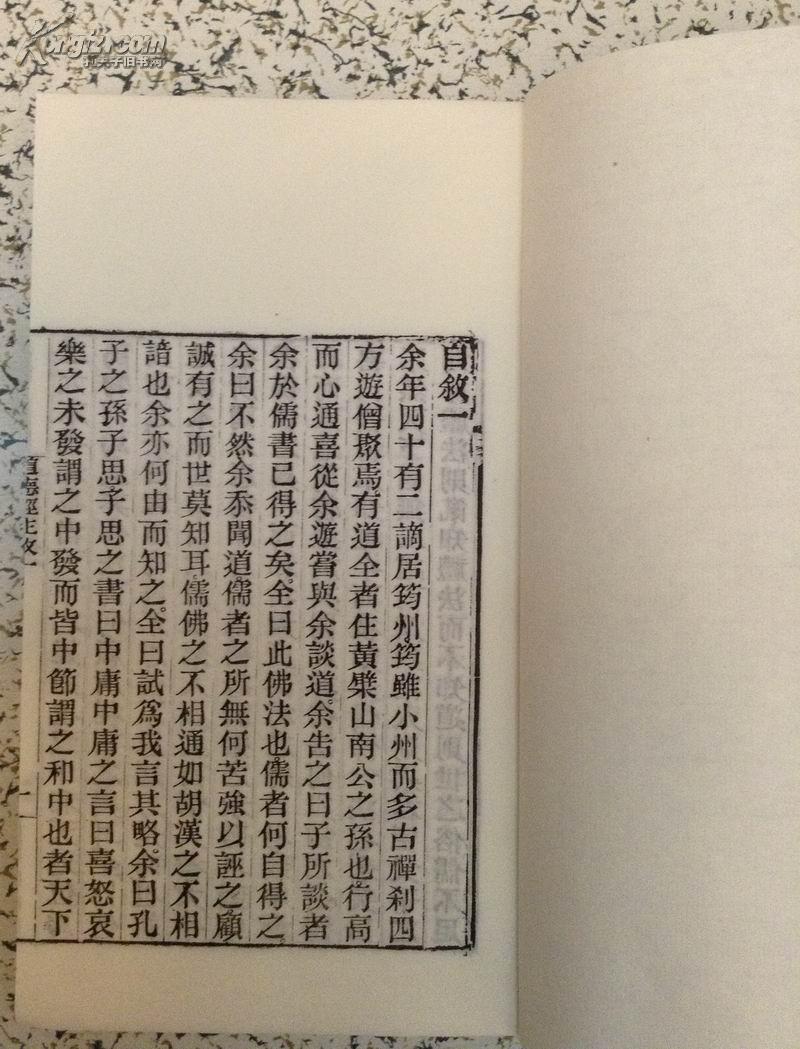 Kongfz.com
孔夫子旧书网
自敘一
余年四十有二謫居筠州筠雖小州而多古禪刹四
方遊僧聚焉有道全者住黃檗山南公之孫也行高
而心通喜從余遊嘗與余談道余告之曰子所談者
余於儒書已得之矣全曰此佛法也儒者何自得之
余曰不然余忝聞道儒者之所無何苦強以誣之顧
誠有之而世莫知耳儒佛之不相通如胡漢之不相
諳也余亦何由而知之全曰試爲我言其略余曰孔
子之孫子思子思之書曰中庸中庸之言曰喜怒哀
樂之未發謂之中發而皆中節謂之和中也者天下
道德經注敘一